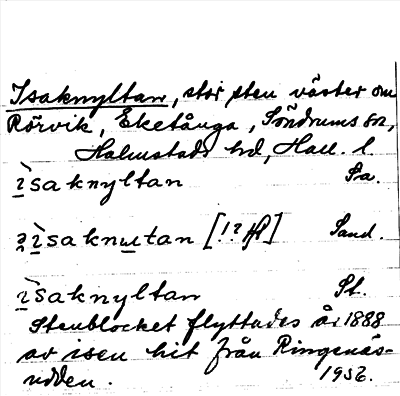 Isaknyltan, stor sten väster om
Rörvik, Eketånga, Söndrums sn,
Halmstads hd, Hall. l.
ìsaknyltan Pa.
ìsaknutan [!? ] Sand.
ìsaknyltan St.
Stenblocket flyttades år 1888
av isen hit från Ringenäs-
udden. 1936.